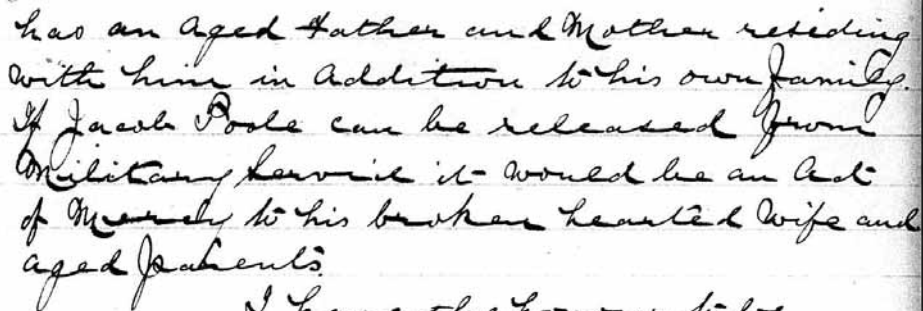 has an aged Father and Mother residing
with him in addition to his own family.
If Jacob Poole can be released from
Military Service it would be an Act
of Mercy to his broken hearted Wife and
aged parents
I have the honor to be